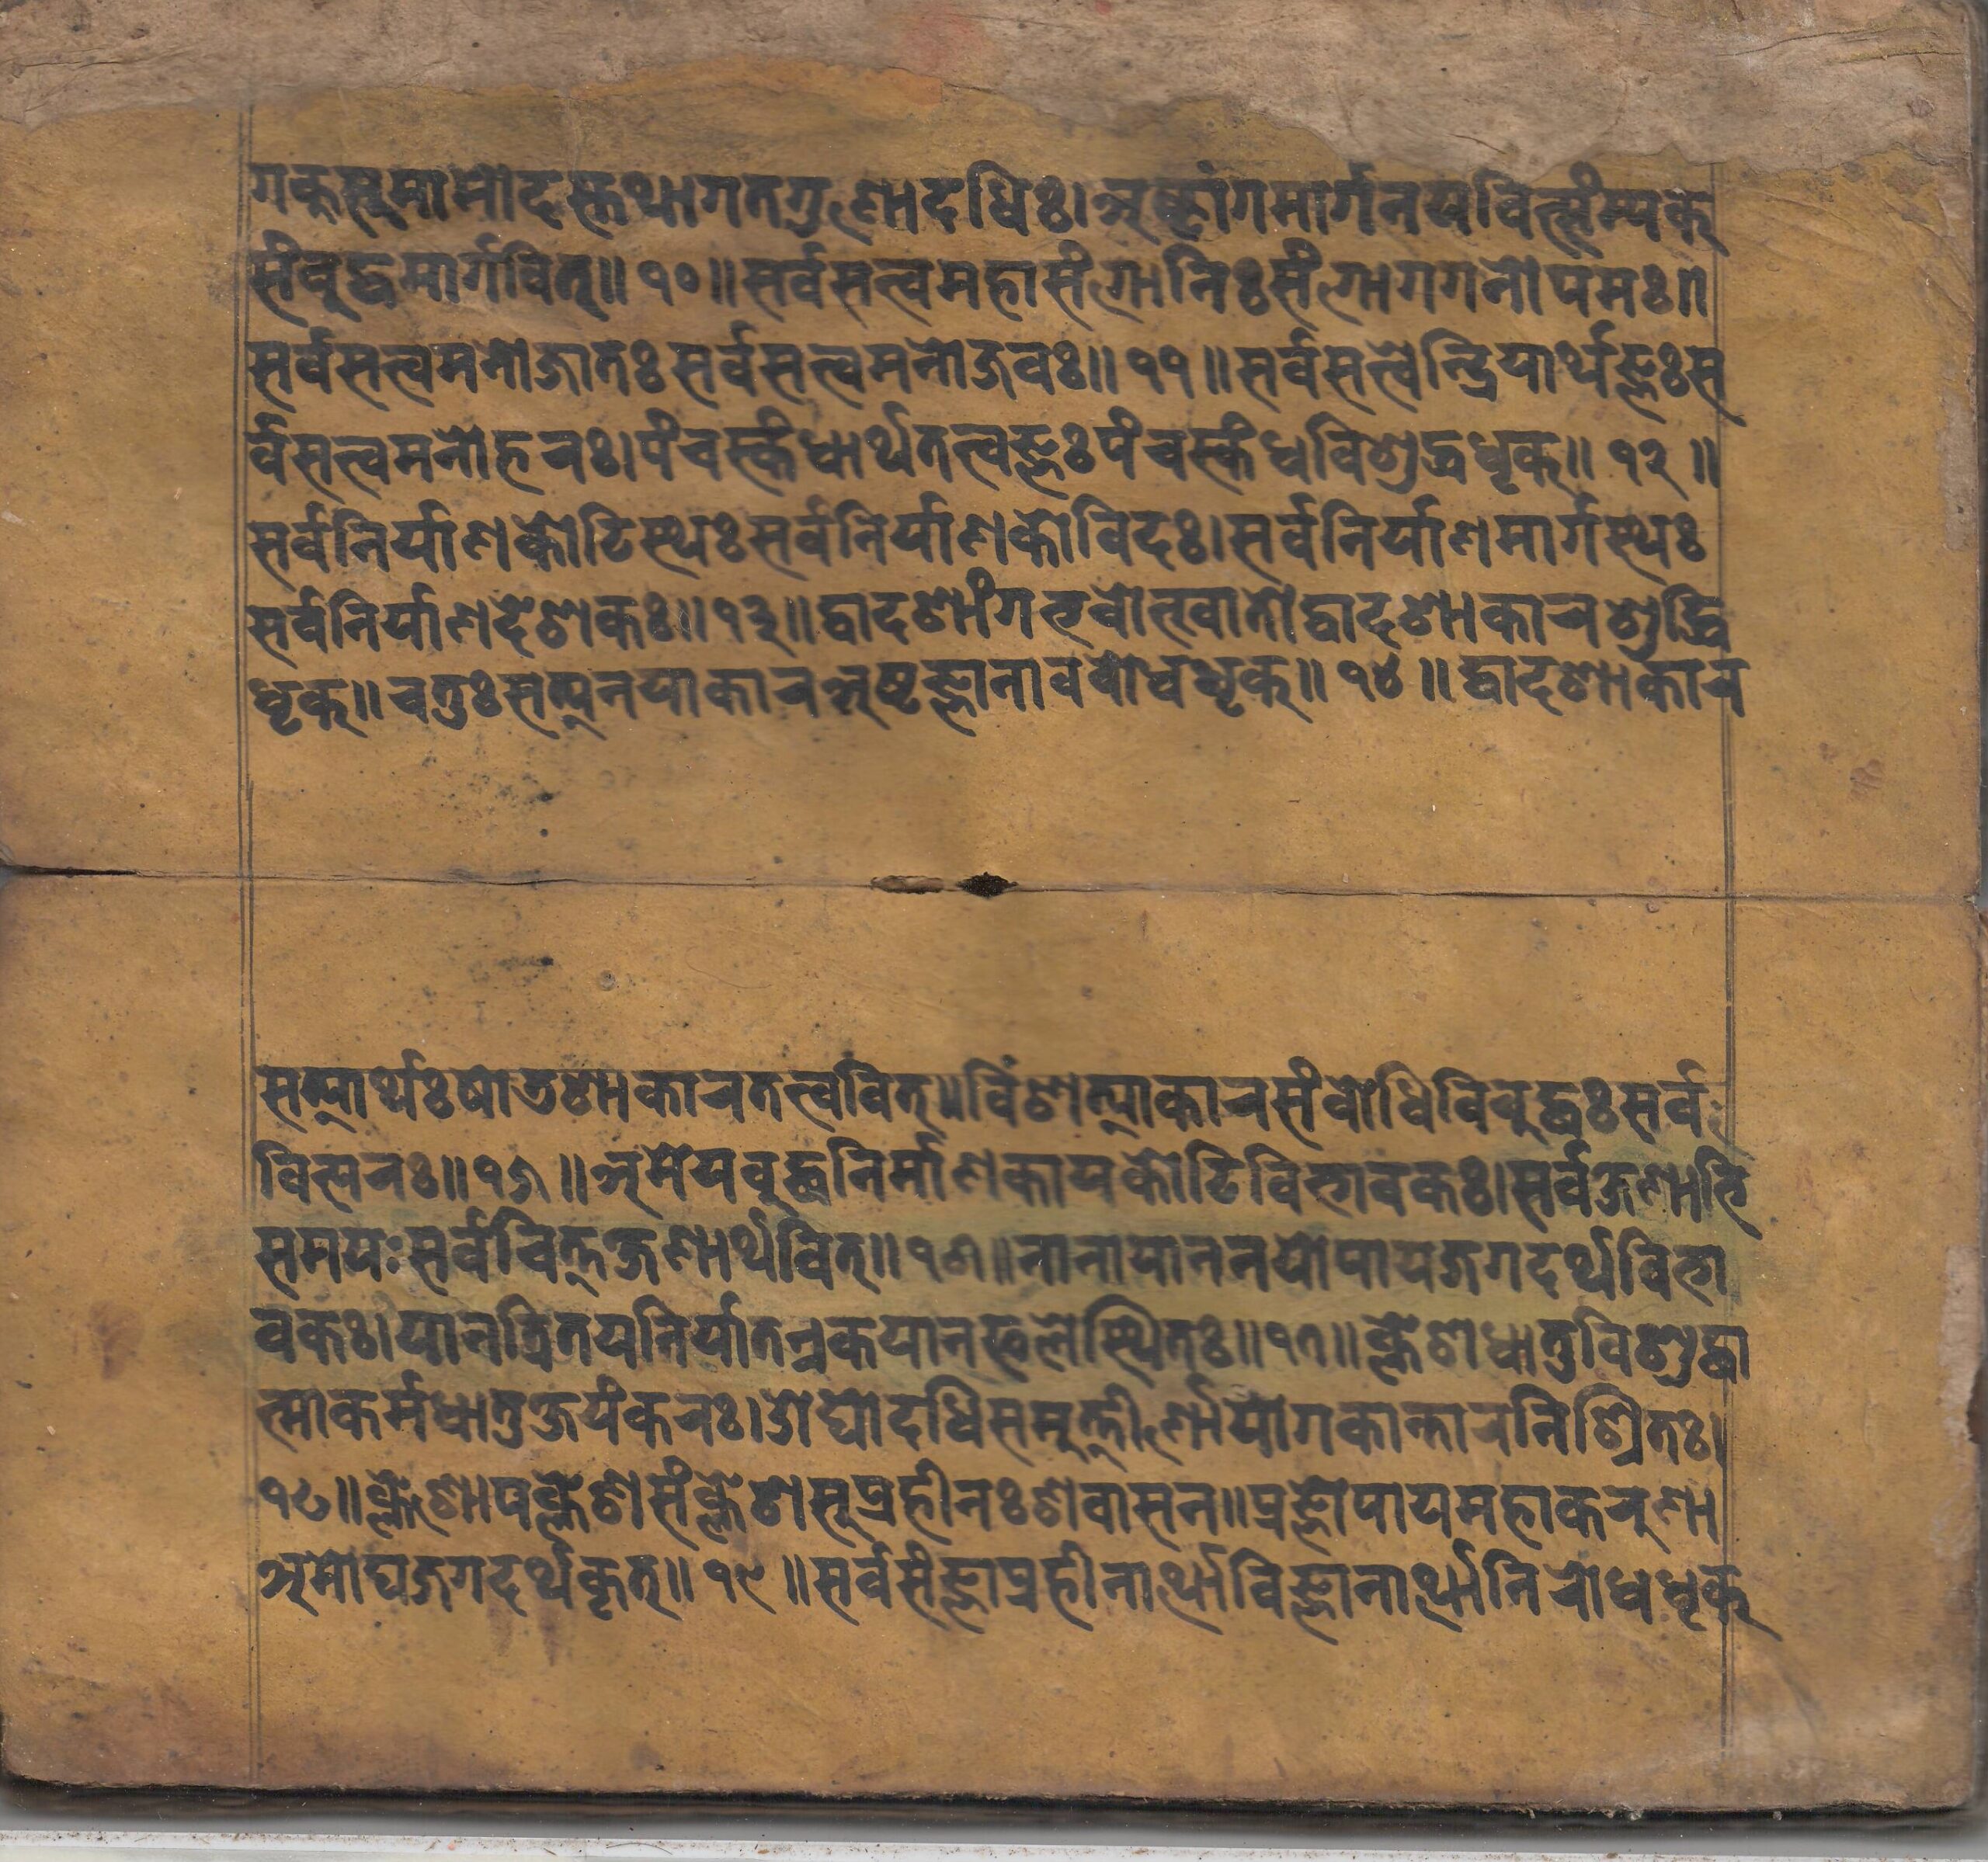 गकुसुमामोदस्तथागतगुणोदधिः। अष्टांगमार्गनयवित्संम्यक्
संबुद्धमार्गवित्॥ १०॥ सर्वसत्त्वमहासंगोनिःसंगोगगनोपमः॥
सर्वसत्त्वमनोजातः सर्वसत्त्वमनोजवः॥ ११॥ सर्वसत्त्वेन्द्रियार्थज्ञः स
र्वसत्त्वमनोहरः। पंचस्कंधार्थतत्त्वज्ञः पंचस्कंधविशुद्धधृक्॥ १२॥
सर्वनिर्याणकोटिस्थः सर्वनिर्याणकोविदः। सर्वनिर्याणमार्गस्थः
सर्वनिर्याणदेशकः॥ १३॥ द्वादशांगभवोत्खातो द्वादशाकारशुद्धि
धृक्॥ चतुःसत्यनयाकारअष्टज्ञानावबोधधृक्॥ १४॥ द्वादशाकार
सत्यार्थः षोडशाकारतत्त्ववित्॥ विंशत्याकारसंबोधिविबुद्धः सर्व
वित्परः॥ १५॥ अमेयबुद्धनिर्माणकायकोटिविभावकः। सर्वक्षणाभि
समयः सर्वचित्तक्षणार्थवित्॥ १६॥ नानायाननयोपायजगदर्थविभा
वकः। यानत्रितयनिर्यातएकयानफलेस्थितः॥ १७॥ क्लेशधातुविशुद्धा
त्माकर्मधातुक्षयंकरः। ओघोदधिसमुत्तीर्णोयोगकान्तारनिश्रितः।
१८॥ क्लेशोपक्लेशसंक्लेशसूप्रहीनः शवासन॥ प्रज्ञोपायमहाकरुणा
अमोघजगदर्थकृत्॥ १९॥ सर्वसंज्ञाप्रहीनार्थोविज्ञानार्थोनिरोधधृक्